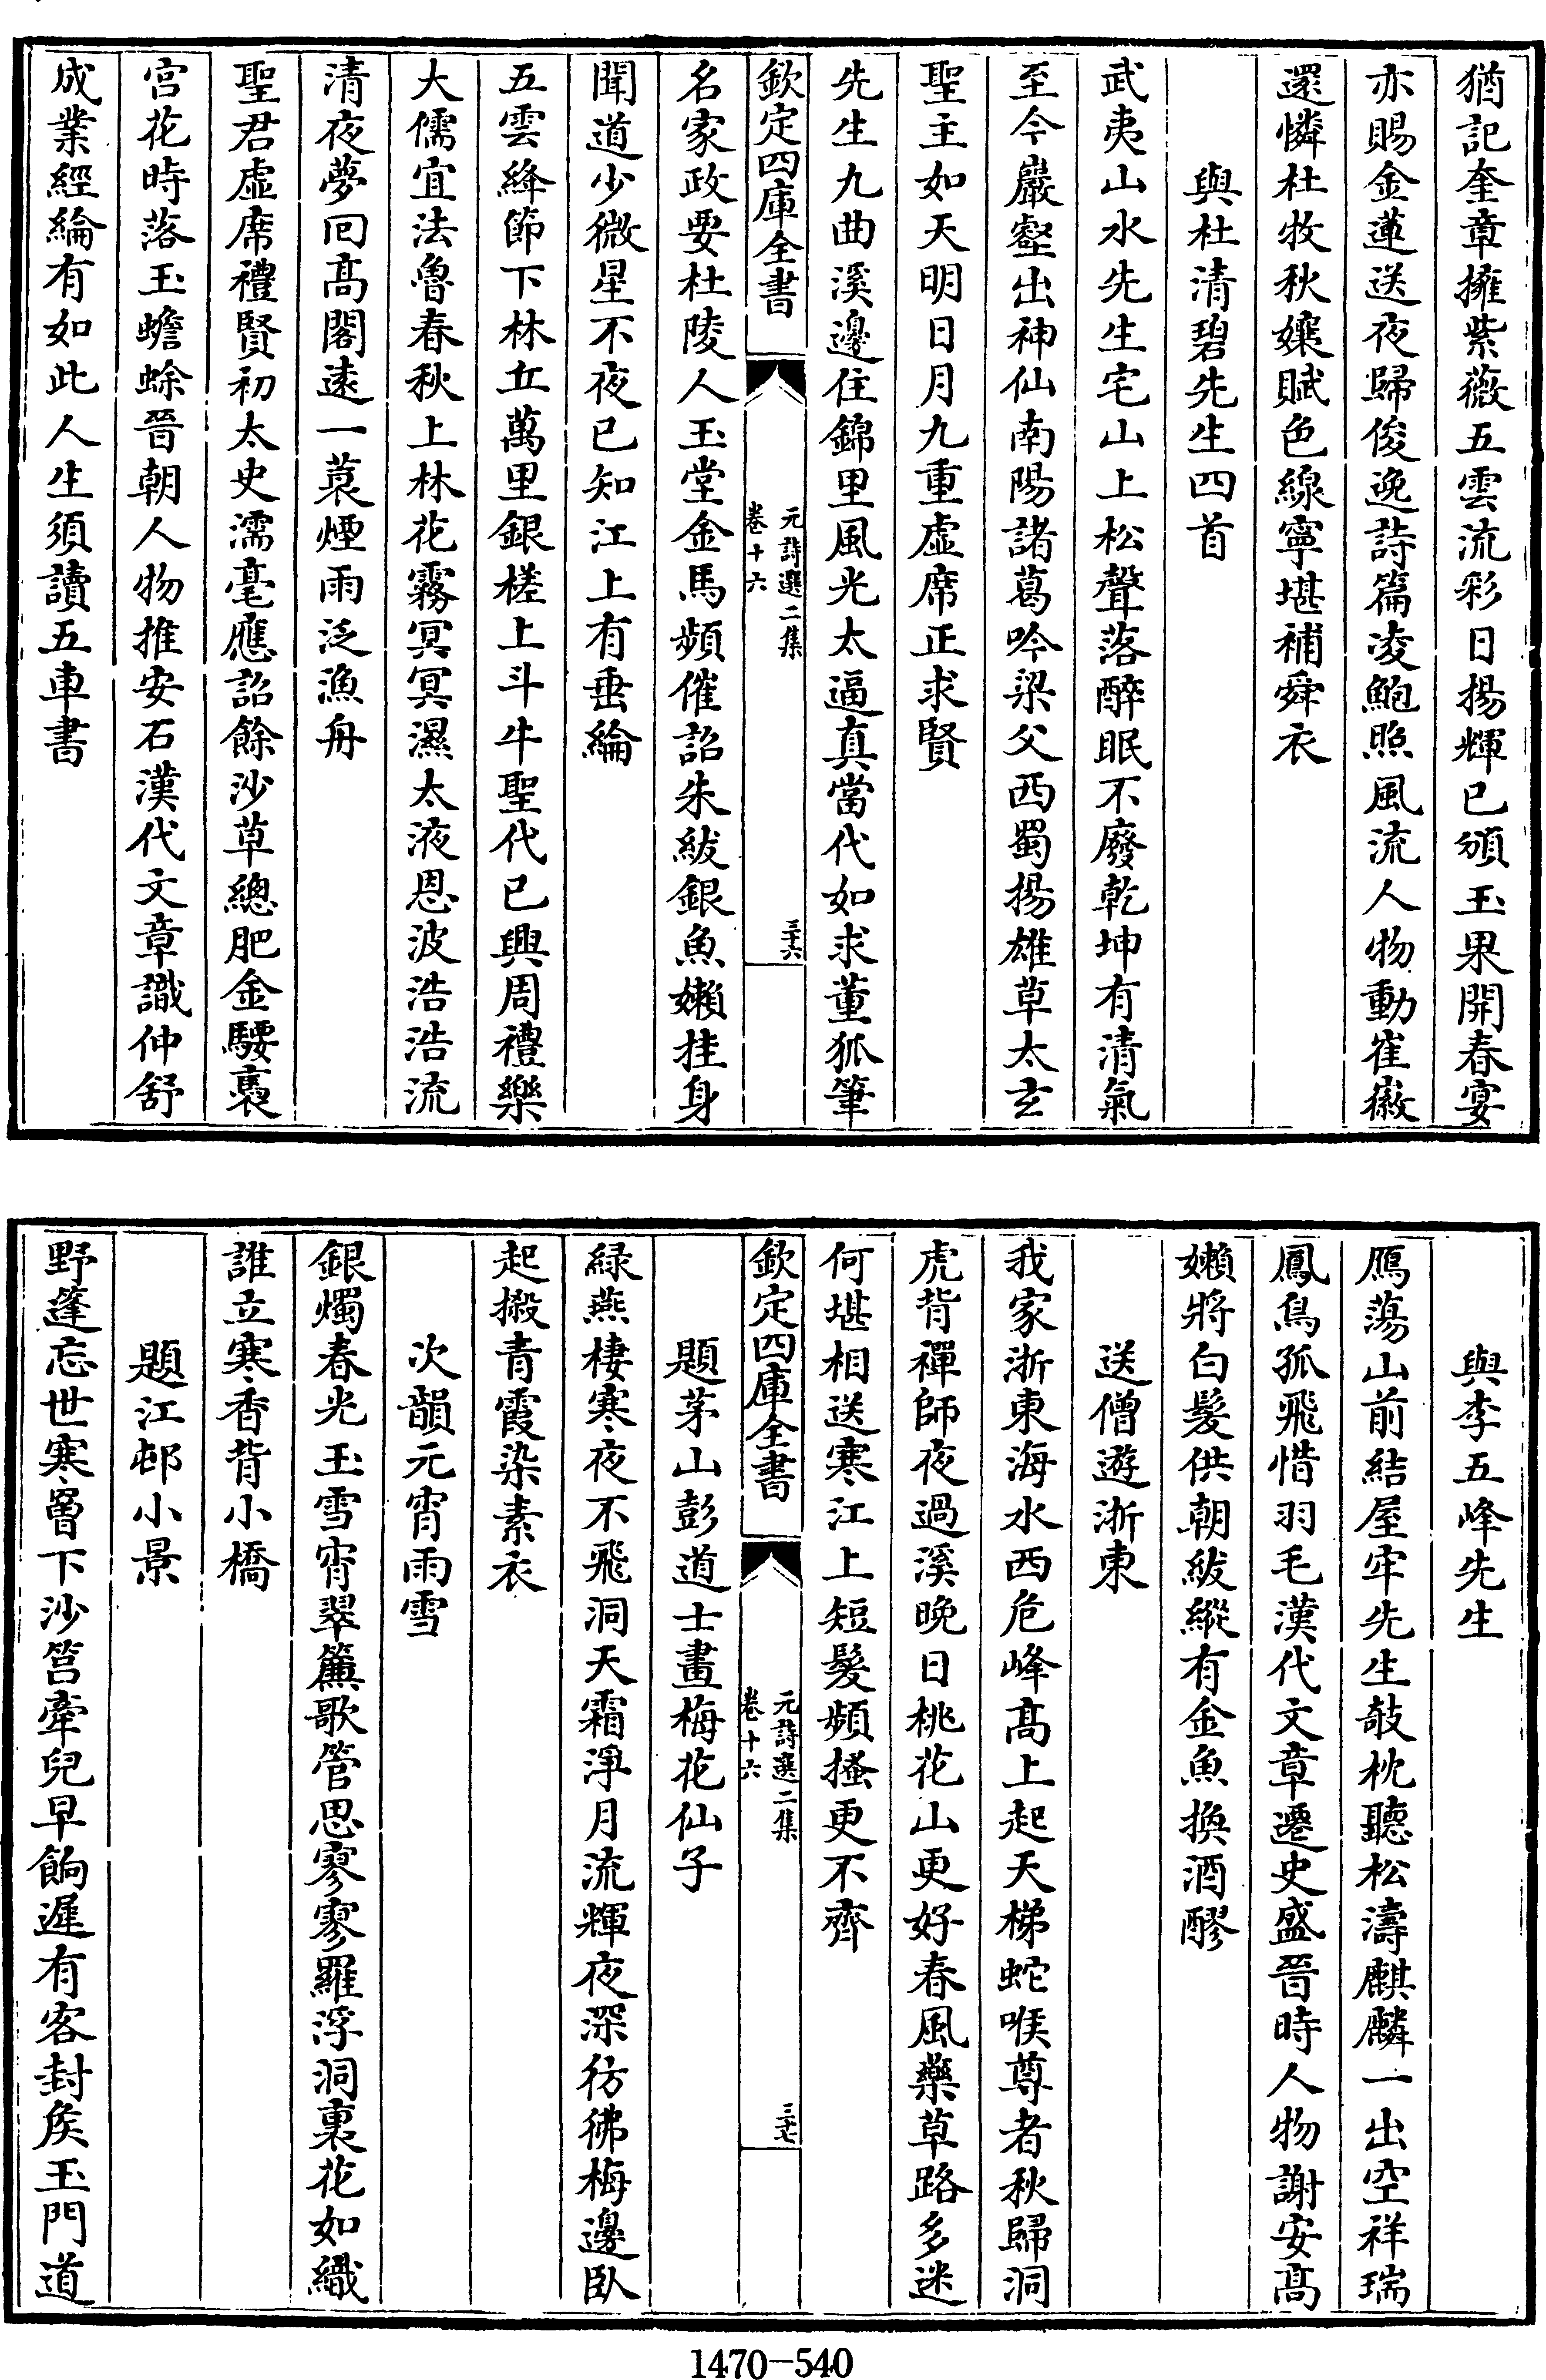 猶記奎章擁紫薇五雲流彩日揚輝已頒玉果開春宴
亦賜金蓮送夜歸俊逸詩篇凌鮑照風流人物動崔徽
還憐杜牧秋孃賦色線寧堪補舜衣
與杜清碧先生四首
武夷山水先生宅山上松聲落醉眠不廢乾坤有清氣
至今巖壑出神仙南陽諸葛吟梁父西蜀揚雄草太玄
聖主如天明日月九重虛席正求賢
先生九曲溪邊住錦里風光太逼真當代如求董狐筆
欽定四庫全書
元詩選二集
卷十六
三十六
名家政要杜陵人玉堂金馬頻催詔朱紱銀魚嬾挂身
聞道少微星不夜已知江上有垂綸
五雲絳節下林丘萬里銀槎上斗牛聖代已興周禮樂
大儒宜法魯春秋上林花霧冥冥濕太液恩波浩浩流
清夜夢回髙閣遠一蓑煙雨泛漁舟
聖君虛席禮賢初太史濡毫應詔餘沙草總肥金騕褭
宮花時落玉蟾蜍晉朝人物推安石漢代文章識仲舒
成業經綸有如此人生須讀五車書
與李五峰先生
鴈蕩山前結屋牢先生攲枕聽松濤麒麟一出空祥瑞
鳳鳥孤飛惜羽毛漢代文章遷史盛晉時人物謝安髙
嬾將白髮供朝紱縱有金魚換酒醪
送僧遊浙東
我家浙東海水西危峰髙上起天梯蛇喉尊者秋歸洞
虎背禪師夜過溪晚日桃花山更好春風藥草路多迷
何堪相送寒江上短髮頻搔更不齊
欽定四庫全書
元詩選二集
卷十六
三十七
題茅山彭道士畫梅花仙子
緑燕棲寒夜不飛洞天霜淨月流輝夜深彷彿梅邊臥
起搬青霞染素衣
次韻元宵雨雪
銀燭春光玉雪宵翠簾歌管思寥寥羅浮洞裏花如織
誰立寒香背小橋
題江邨小景
野蓬忘世寒罾下沙筥牽兒早餉遲有客封矦玉門道
1470-540